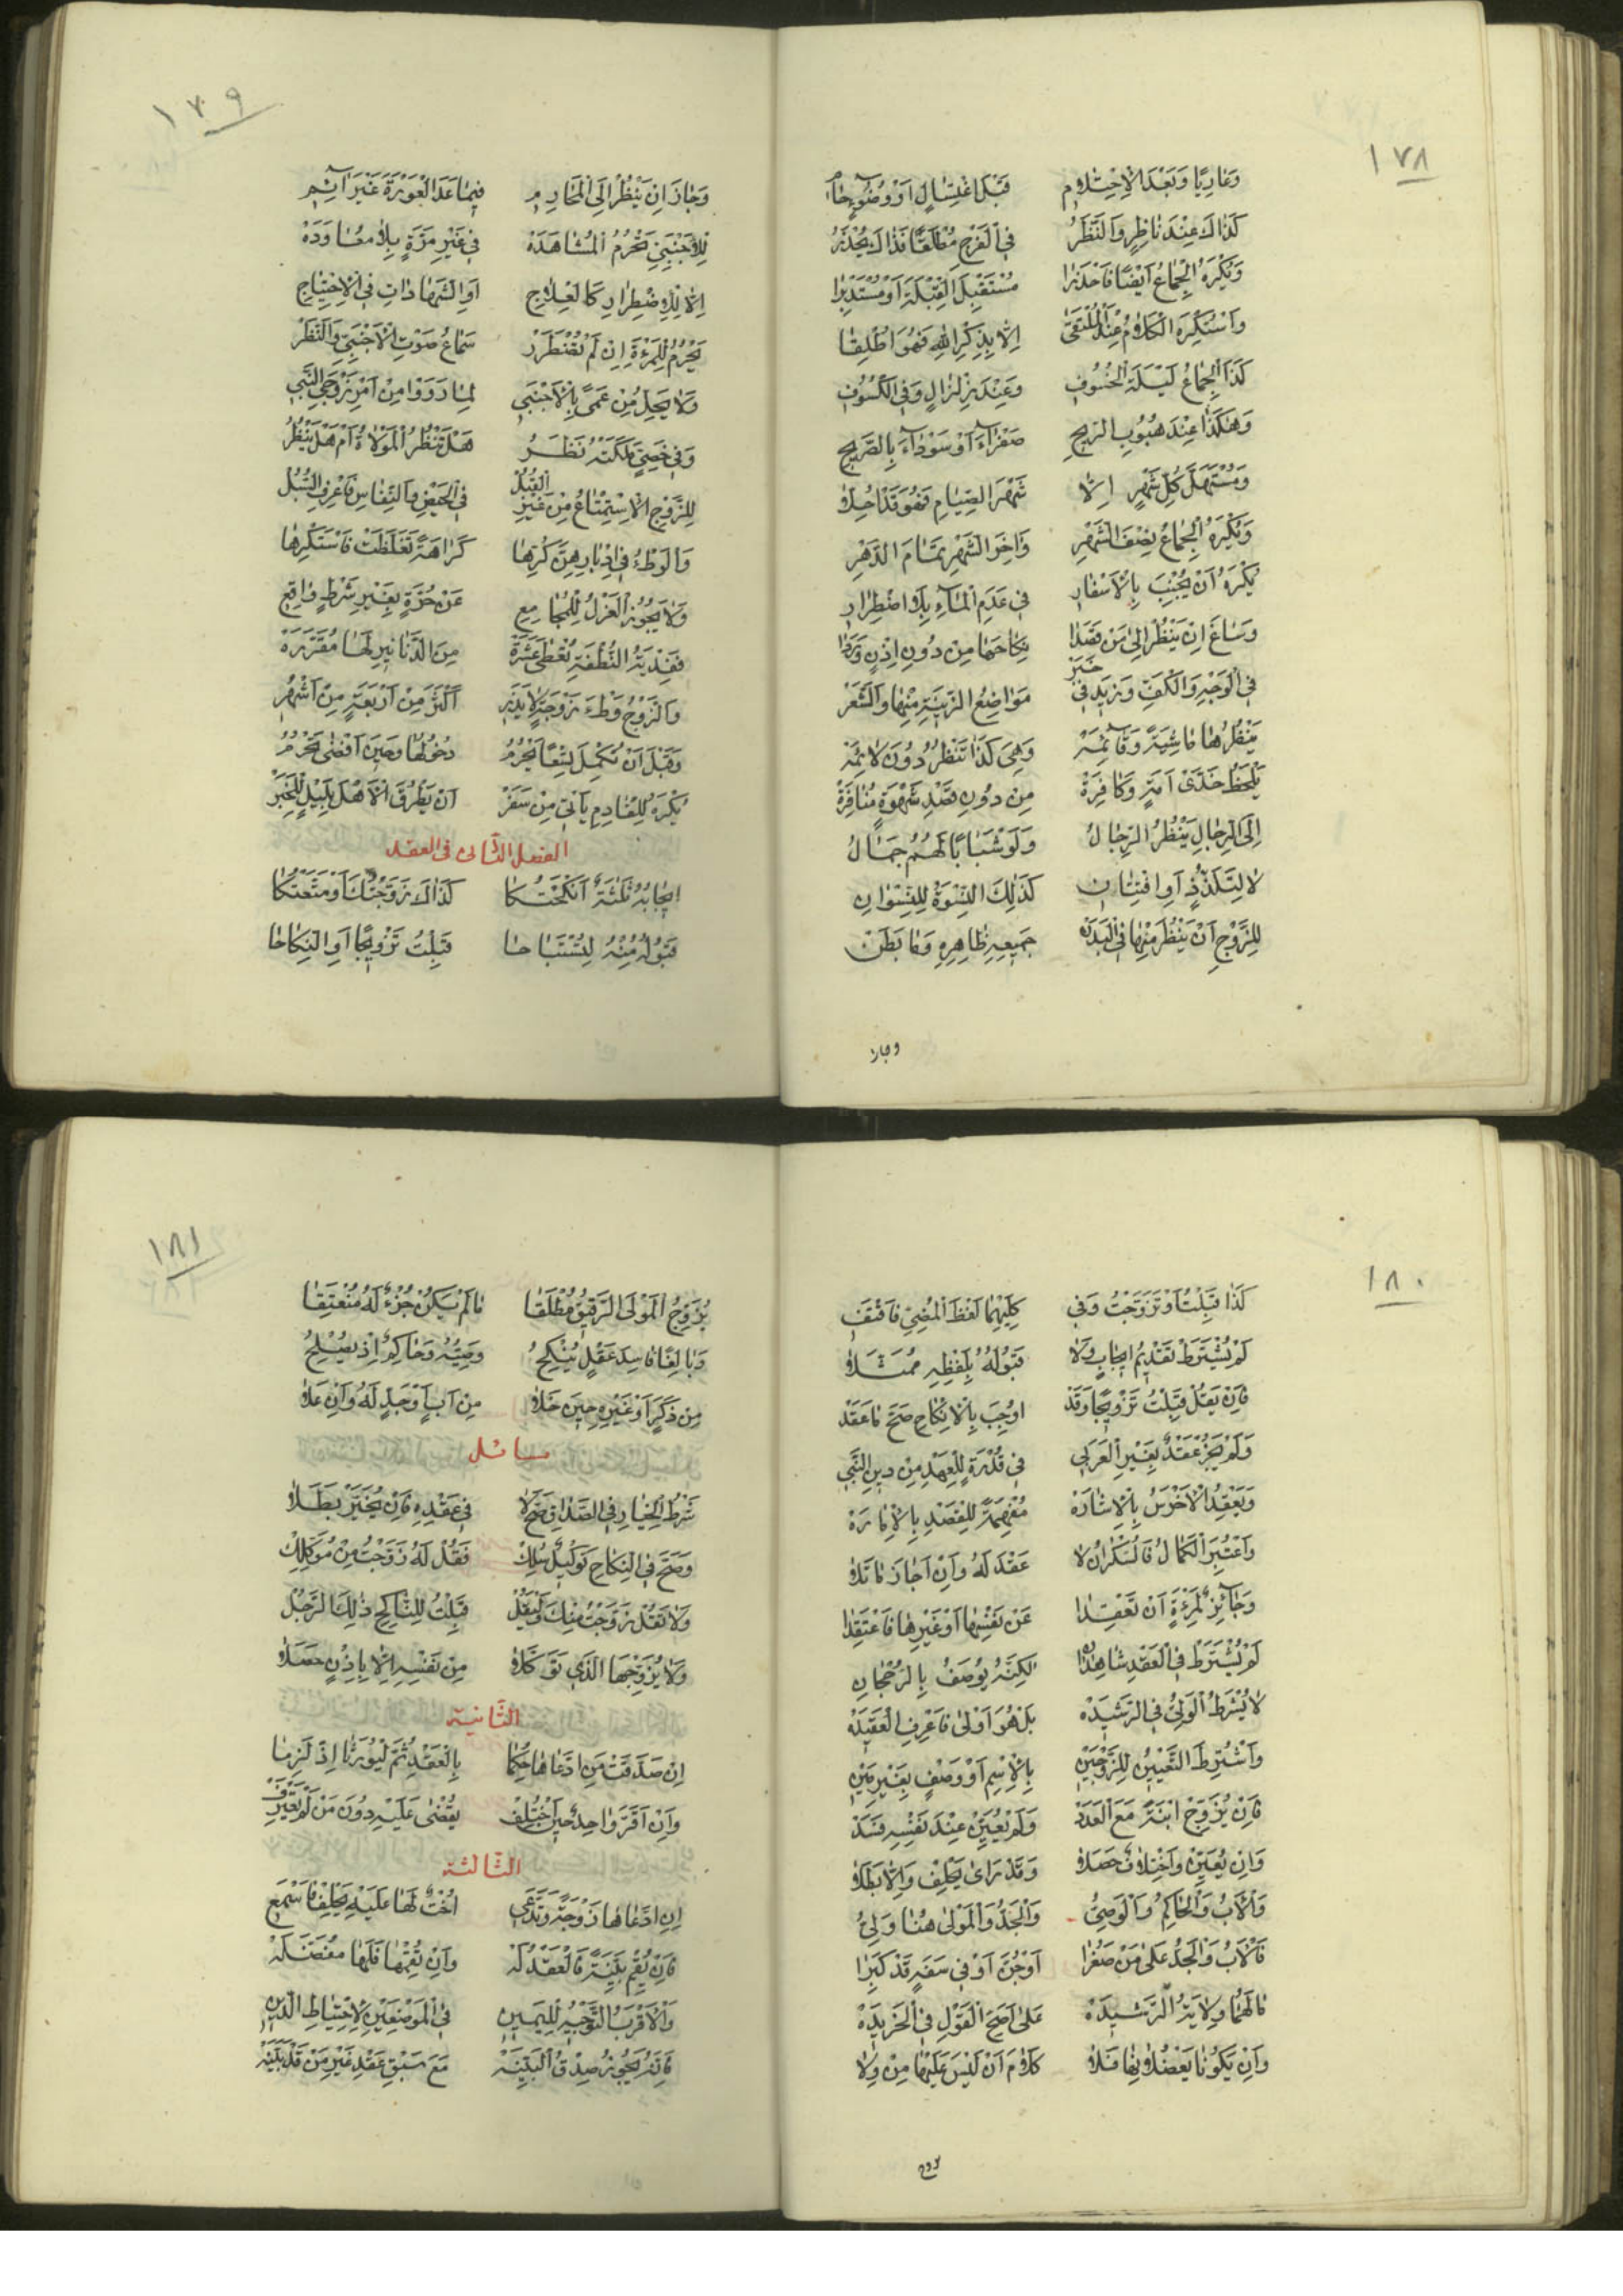 ١٧٨
وَعَارِيًا وَبَعْدَ الْاِحْتِلَامِ قَبْلَ اغْتِسَالٍ اَوْ وُضُوءٍ
كَذَاكَ عِنْدَ نَاظِرٍ وَالنَّظَرُ فِي الْفَرْجِ مُطْلَقًا فَذَاكَ يُحْذَرُ
وَيُكْرَهُ الْجِمَاعُ اَيْضًا فَاحْذَرَا مُسْتَقْبِلَ الْقِبْلَةِ اَوْ مُسْتَدْبِرَا
وَاسْتُكْرِهَ الْكَلَامُ عِنْدَ الْمُلْتَقَى اِلَّا بِذِكْرِ اللهِ فَهْوَ اُطْلِقَا
كَذَا الْجِمَاعُ لَيْلَةَ الْخُسُوفِ وَعِنْدَ زِلْزَالٍ وَفِي الْكُسُوفِ
وَهٰكَذَا عِنْدَ هُبُوبِ الرِّيحِ صَفْرَاءَ اَوْ سَوْدَاءَ بِالصَّرِيحِ
وَمُسْتَهَلَّ كُلِّ شَهْرٍ اِلَّا شَهْرَ الصِّيَامِ فَهْوَ قَدْ اُحِلَّا
وَيُكْرَهُ الْجِمَاعُ نِصْفَ الشَّهْرِ وَآخِرَ الشَّهْرِ تَمَامَ الدَّهْرِ
يُكْرَهُ اَنْ يُجْنِبَ بِالْاَسْفَارِ فِي عَدَمِ الْمَاءِ بِلَا اضْطِرَارِ
وَسَاغَ اِنْ يَنْظُرْ اِلَى مَنْ قَصَدَا نِكَاحَهَا مِنْ دُونِ اِذْنٍ
فِي الْوَجْهِ وَالْكَفِّ وَزِيدَ فِي خَبَرْ مَوَاضِعُ الزِّينَةِ مِنْهَا وَالشَّعَرْ
يَنْظُرُهَا مَاشِيَةً وَقَائِمَةْ وَهِيَ كَذَا تَنْظُرُ دُونَ لَائِمَةْ
يَلْحَظُ خَدَّيْ اَمَةٍ وَكَافِرَةْ مِنْ دُونِ قَصْدِ شَهْوَةٍ مُنَافِرَةْ
اِلَى الرِّجَالِ يَنْظُرُ الرِّجَالُ وَلَوْ شَبَابًا لَهُمُ جَمَالُ
لَا لِتَلَذُّذٍ اَوِ افْتِتَانِ كَذٰلِكَ النِّسْوَةُ لِلنِّسْوَانِ
لِلزَّوْجِ اَنْ يَنْظُرَ مِنْهَا فِي الْبَدَنْ جَمِيعِهِ ظَاهِرِهِ وَمَا بَطَنْ
وجاز
١٧٩
وَجَازَ اَنْ يَنْظُرَ اِلَى الْمَحَارِمِ فِيمَا عَدَا الْعَوْرَةَ غَيْرَ آثِمِ
لِلْاَجْنَبِيِّ تَحْرُمُ الْمُشَاهَدَةْ فِي غَيْرِ مَرَّةٍ بِلَا مُعَاوَدَةْ
اِلَّا لِلِاضْطِرَارِ كَالْعِلَاجِ اَوِ الشَّهَادَاتِ فِي الْاِحْتِيَاجِ
يَحْرُمُ لِلْمَرْءَةِ اِنْ لَمْ تُضْطَرَرْ سَمَاعُ صَوْتِ الْاَجْنَبِيِّ وَالنَّظَرْ
وَلَا يَحِلُّ مِنْ عَمًى بِالْاَجْنَبِي لِمَا رَوَوْا مِنْ اَمْرِ زَوْجَيِ النَّبِي
وَفِي خَصِيٍّ مَلَكَتْهُ نَظَرُ هَلْ تَنْظُرُ الْمَوْلَاةُ اَمْ هَلْ يَنْظُرُ
لِلزَّوْجِ الْاِسْتِمْتَاعُ مِنْ غَيْرِ الْقُبُلْ فِي الْحَيْضِ وَالنِّفَاسِ فَاعْرِفِ السُّبُلْ
وَالْوَطْءُ فِي اَدْبَارِهِنَّ كُرِهَا كَرَاهَةً تَغَلَّظَتْ فَاسْتَكْرِهَا
وَلَا يَجُوزُ الْعَزْلُ لِلْمُجَامِعِ عَنْ حُرَّةٍ بِغَيْرِ شَرْطٍ وَاقِعِ
فَفِدْيَةُ النُّطْفَةِ تُعْطَى عَشَرَةْ مِنَ الدَّنَانِيرِ لَهَا مُقَرَّرَةْ
وَالزَّوْجُ وَطْءَ زَوْجَةٍ لَا يَذَرِ اَكْثَرَ مِنْ اَرْبَعَةٍ مِنْ اَشْهُرِ
وَقَبْلَ اَنْ تُكْمِلَ تِسْعًا يَحْرُمُ دُخُولُهَا وَحِينَ اَفْضَى تَحْرُمُ
يُكْرَهُ لِلْقَادِمِ يَأْتِي مِنْ سَفَرْ اَنْ يَطْرُقَ الْاَهْلَ بِلَيْلٍ لِلْخَبَرْ
الفصل الثّانى فى العقد
اِيجَابُهُ ثَلٰثَةٌ اَنْكَحْتُكَا كَذَاكَ زَوَّجْتُكَ اَوْ مَتَّعْتُكَا
قَبُولُهُ مِنْهُ لِتُسْتَبَاحَا قَبِلْتُ تَزْوِيجًا اَوِ النِّكَاحَا
١٨٠
كَذَا قَبِلْتُ اَوْ تَزَوَّجْتُ وَفِي كِلَيْهِمَا لَفْظَ الْمُضِيِّ فَاقْتَفِ
لَمْ يُشْتَرَطْ تَقْدِيمُ اِيجَابٍ وَلَا قَبُولُهُ بِلَفْظِهِ مُمَثَّلَا
فَاِنْ يَقُلْ قَبِلْتُ تَزْوِيجًا وَقَدْ اُوجِبَ بِالْاِنْكَاحِ صَحَّ مَا عَقَدْ
وَلَمْ يَجُزْ عَقْدٌ بِغَيْرِ الْعَرَبِي فِي قُدْرَةٍ لِلْعَهْدِ مِنْ دِينِ النَّبِي
وَيَعْقِدُ الْاَخْرَسُ بِالْاِشَارَةْ مُفْهِمَةً لِلْقَصْدِ بِالْاِمَارَةْ
وَاعْتُبِرَ الْكَمَالُ فَالسَّكْرَانُ لَا عَقْدَ لَهُ وَاِنْ اَجَازَ مَا تَلَا
وَجَائِزٌ لِمَرْءَةٍ اَنْ تَعْقِدَا عَنْ نَفْسِهَا اَوْ غَيْرِهَا فَاعْتَقِدَا
لَمْ يُشْتَرَطْ فِي الْعَقْدِ شَاهِدَانِ لٰكِنَّهُ يُوصَفُ بِالرُّجْحَانِ
لَا يُشْرَطُ الْوَلِيُّ فِي الرَّشِيدَةْ بَلْ هُوَ اَوْلَى فَاعْرِفِ الْعَقِيدَةْ
وَاشْتُرِطَ التَّعْيِينُ لِلزَّوْجَيْنِ بِالْاِسْمِ اَوْ وَصْفٍ بِغَيْرِ مَيْنِ
فَاِنْ يُزَوِّجْ ابْنَةً مَعَ الْعَدَدْ وَلَمْ يُعَيِّنْ عِنْدَ نَفْسِهِ فَسَدْ
وَاِنْ يُعَيِّنْ وَاخْتِلَافٌ حَصَلَا وَقَدْ رَاٰى يَحْلِفْ وَاِلَّا بَطَلَا
وَالْاَبُ وَالْحَاكِمُ وَالْوَصِيُّ وَالْجَدُّ وَالْمَوْلَى هُنَا وَلِيُّ
فَالْاَبُ وَالْجَدُّ عَلَى مَنْ صَغُرَا اَوْ جُنَّ اَوْ فِي سَفَهٍ قَدْ كَبُرَا
مَا لَهُمَا وِلَايَةُ الرَّشِيدَةْ عَلَى اَصَحِّ الْقَوْلِ فِي الْخَرِيدَةْ
وَاِنْ يَكُونَا يَعْضُلَانِهَا فَلَا كَلَامَ اَنْ لَيْسَ عَلَيْهَا مِنْ وِلَا
يزوج
١٨١
يُزَوِّجُ الْمَوْلَى الرَّقِيقَ مُطْلَقَا مَا لَمْ يَكُنْ جُزْءٌ لَهُ مُنْعَتِقَا
وَبَالِغًا فَاسِدَ عَقْلٍ يُنْكِحُ وَصِيُّهُ وَحَاكِمٌ اِذْ يَصْلُحُ
مِنْ ذَكَرٍ اَوْ غَيْرِهِ حِينَ خَلَا مِنْ اَبٍ اَوْ جَدٍّ لَهُ وَاِنْ عَلَا
مسائل
شَرْطُ الْخِيَارِ فِي الصَّدَاقِ صَحَّ لَا فِي عَقْدِهِ فَاِنْ يُخَيِّرْ بَطَلَا
وَصَحَّ فِي النِّكَاحِ تَوْكِيلٌ سُلِكْ فَقُلْ لَهُ زَوَّجْتُ مِنْ مُوَكِّلِكْ
وَلَا تَقُلْ زَوَّجْتُ مِنْكَ وَلْيَقُلْ قَبِلْتُ لِلنَّاكِحِ ذٰلِكَ الرَّجُلْ
وَلَا يُزَوِّجْهَا الَّذِي تَوَكَّلَا مِنْ نَفْسِهِ اِلَّا بِاِذْنٍ حَصَلَا
الثّانية
اِنْ صَدَّقَتْ مَنِ ادَّعَاهَا حُكِمَا بِالْعَقْدِ ثُمَّ لْيُورَثَا اِذْ لَزِمَا
وَاِنْ اَقَرَّ وَاحِدٌ حِينَ اخْتُلِفْ يُقْضَى عَلَيْهِ دُونَ مَنْ لَمْ يَعْتَرِفْ
الثّالثة
اِنِ ادَّعَاهَا زَوْجَةً وَتَدَّعِي اُخْتٌ لَهَا عَلَيْهِ يَحْلِفْ فَاسْمَعِ
فَاِنْ يُقِمْ بَيِّنَةً فَالْعَقْدُ لَهْ وَاِنْ تُقِمْهَا فَلَهَا مُفَصَّلَهْ
وَالْاَقْرَبُ التَّوْجِيهُ لِلْيَمِينِ فِي الْمَوْضِعَيْنِ لِاحْتِيَاطِ الدِّينِ
فَاِنَّهُ يَجُوزُ صِدْقُ الْبَيِّنَهْ مَعَ سَبْقِ عَقْدِ غَيْرِ مَنْ قَدْ بَيَّنَهْ